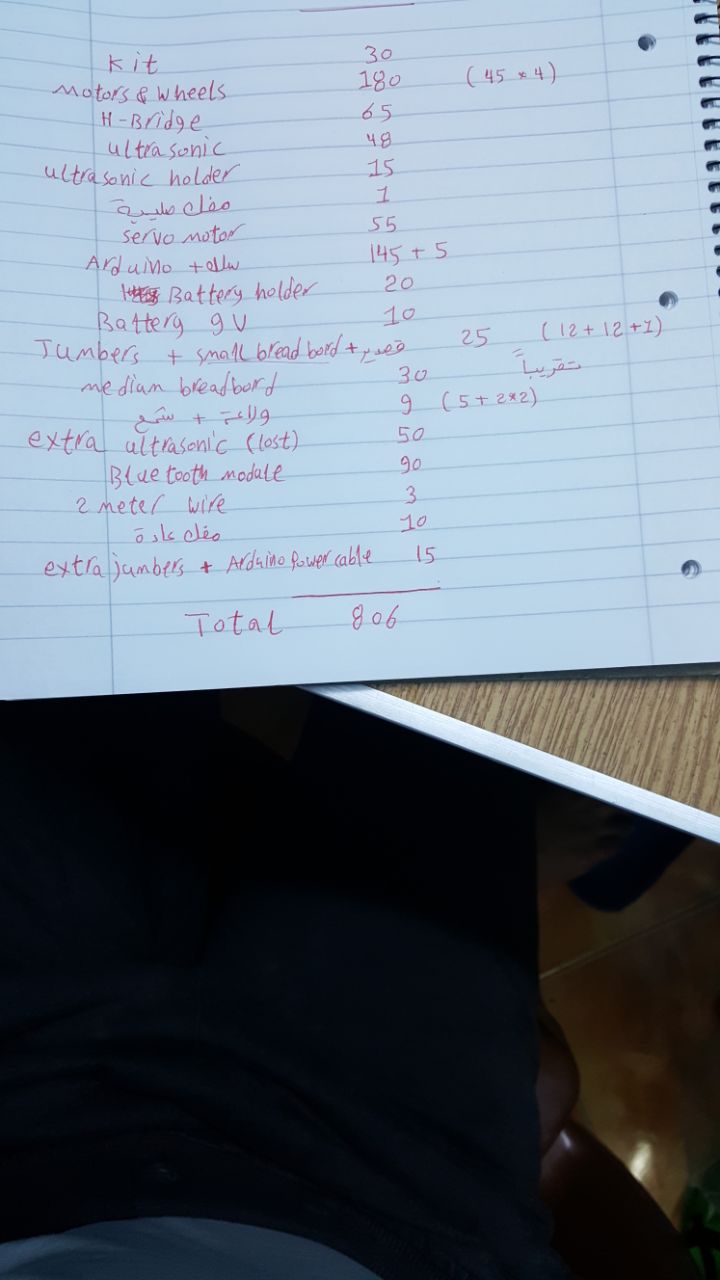 Kit 30
Motors & wheels 180 (45 * 4)
H-Bridge 65
ultrasonic 48
ultrasonic holder 15
مفك صليبة 1
servo motor 55
Arduino + 145 + 5
Battery holder 20
Battery 9V 10
Jumbers + small bread bord + قصدير 25 (12 + 12 + 1)
تقريباً
median breadbord 30
ولاعة + شمع 9 (5 + 2*2)
extra ultrasonic (lost) 50
Bluetooth module 90
2 meter wire 3
مفك عادة 10
extra jumbers + Arduino Power cable 15
Total 806